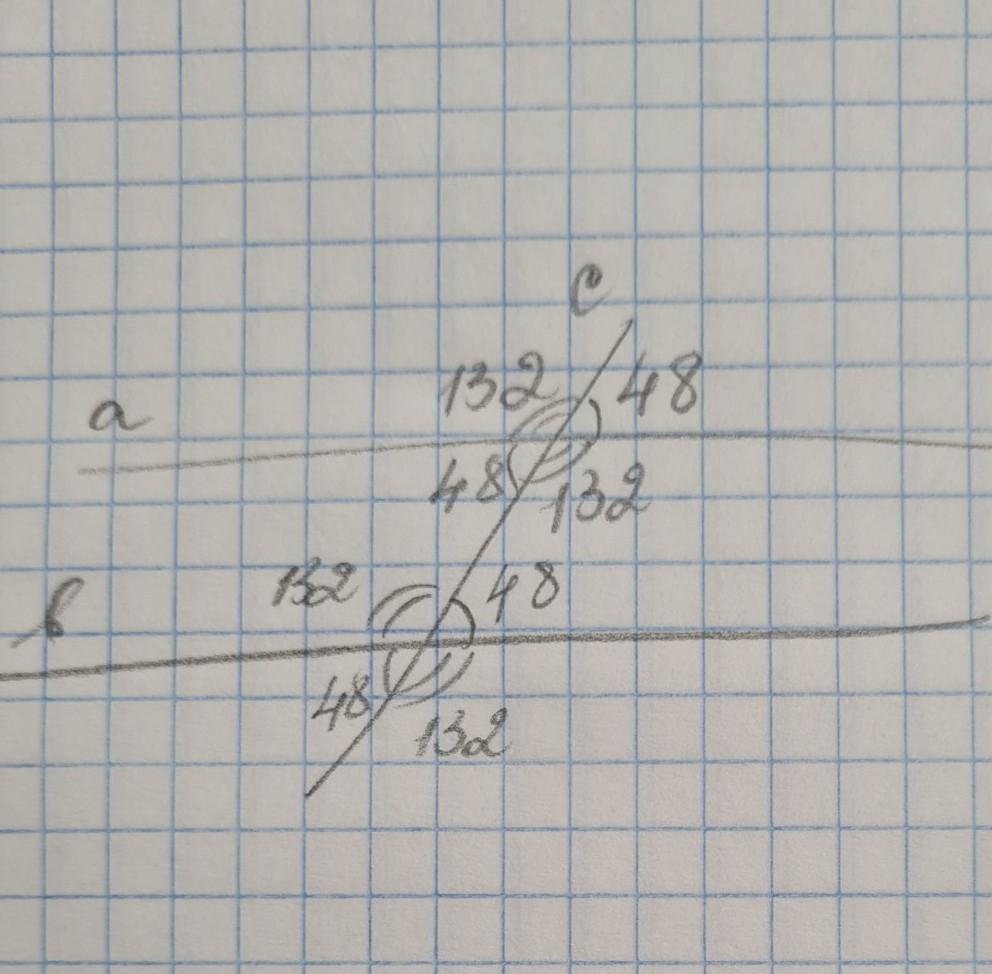 c
132 48
a
48 132
132 48
b
48
132